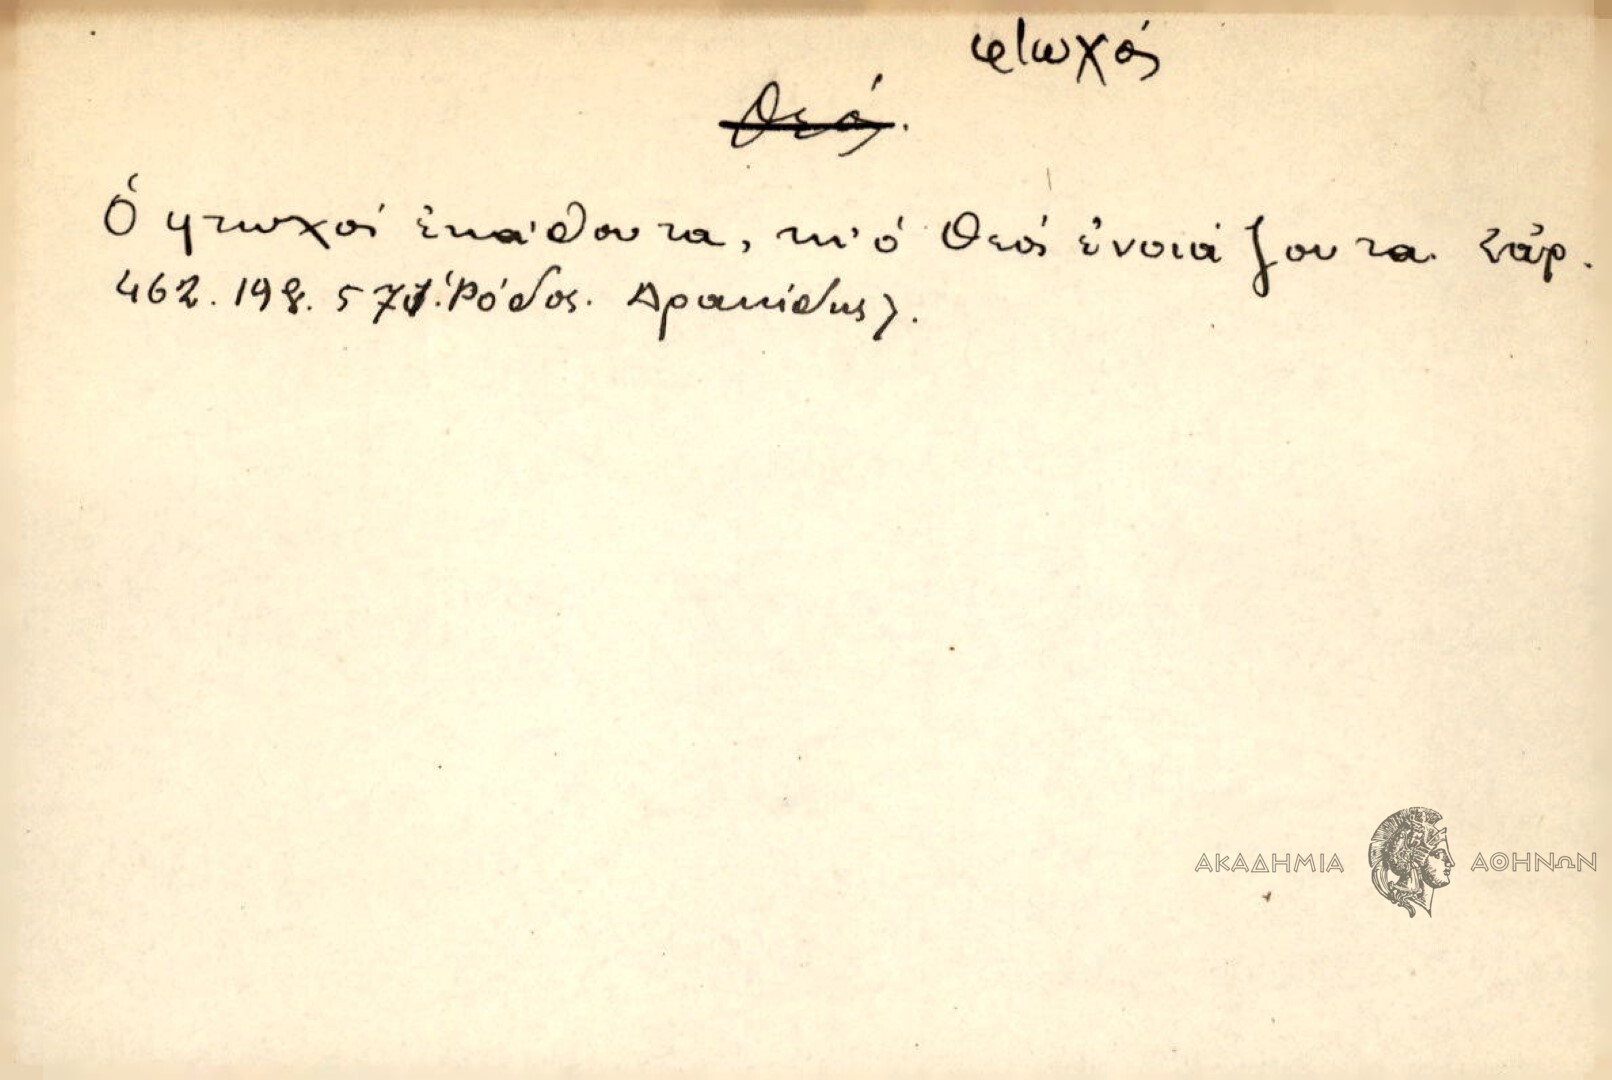 φτωχός
θεός.
Ὁ φτωχὸς ἐκάθουτα, κι' ὁ Θεὸς ἐνοιάζουτα. Σάρ.
462. 198. 571. Ῥόδος. Δρακίδης).
ΑΚΑΔΗΜΙΑ ΑΘΗΝΩΝ